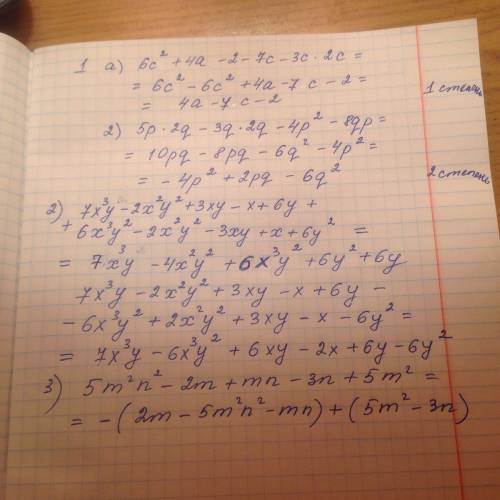 1 а) 6c² + 4a - 2 - 7c - 3c · 2c =
= 6c² - 6c² + 4a - 7c - 2 =
= 4a - 7c - 2
1 степень
2) 5p · 2q - 3q · 2q - 4p² - 8qp =
= 10pq - 8pq - 6q² - 4p² =
= -4p² + 2pq - 6q²
2 степень
2) 7x³y - 2x²y² + 3xy - x + 6y +
+ 6x³y² - 2x²y² - 3xy + x + 6y² =
= 7x³y - 4x²y² + 6x³y² + 6y² + 6y
7x³y - 2x²y² + 3xy - x + 6y -
- 6x³y² + 2x²y² + 3xy - x - 6y² =
= 7x³y - 6x³y² + 6xy - 2x + 6y - 6y²
3) 5m²n² - 2m + mn - 3n + 5m² =
= -(2m - 5m²n² - mn) + (5m² - 3n)